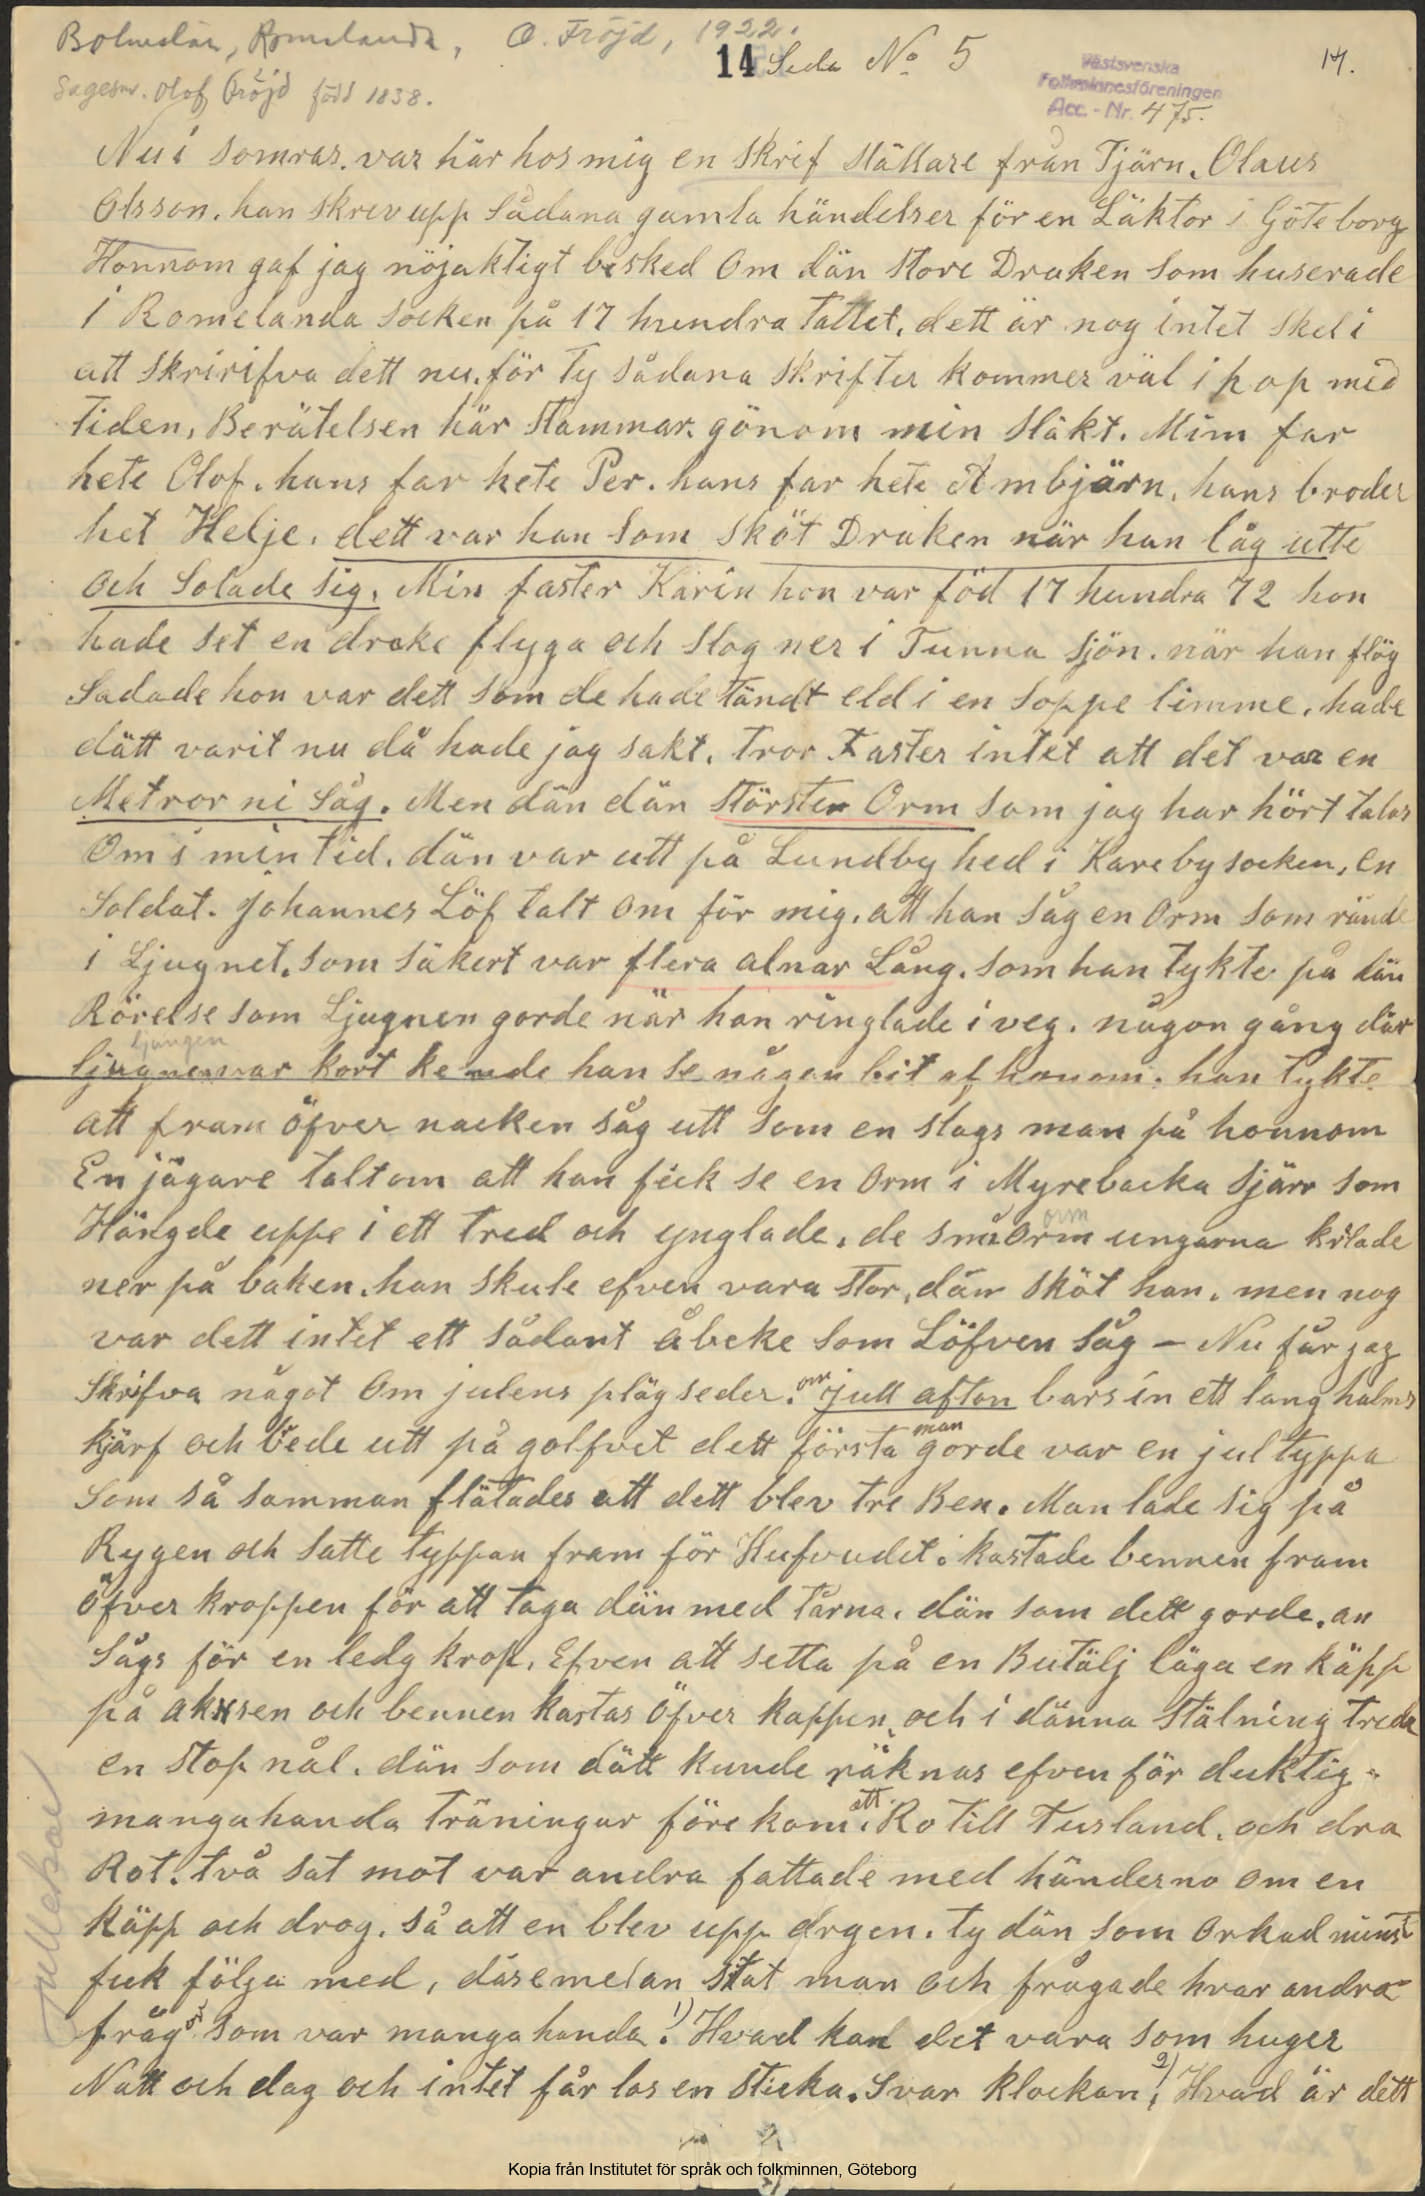 Bohuslän, Romelanda, O. Fröjd, 1922.
14 Sida No 5 14.
Västsvenska
Folkminnesföreningen
Acc.-Nr. 475.
Sagesm. Olof Fröjd född 1838.
Nu i somras. var här hos mig en skrif ställare från Tjärn. Olaus
Olsson. han skrev upp sådana gamla händelser för en Läktor i Göteborg
Honnom gaf jag nöjaktigt besked Om dän store Draken som huserade
i Romelanda socken på 17 hundra tallet. dett är nog intet skel i
att skririfva dett nu. för ty sådana skrifter kommer väl i hop med
tiden, Berätelsen här stammar. gönom min släkt. Mim far
hete Olof. hans far hete Per. hans far hete Ambjärn. hans broder
het Helje. dett var han som sköt Draken när han låg utte
och Solade sig. Min faster Karin hon var föd 17 hundra 72 hon
hade set en drake flyga och slog ner i Tunna sjön. när han flög
Sadade hon var dett som de hade tändt eld i en soppe limme. hade
dätt varit nu då hade jag sakt. tror Faster intet att det var en
Metror ni såg. Men dän dän störsten Orm som jag har hört talas
Om i min tid. dän var utt på Lundby hed i Kareby socken, en
Soldat. Johannes Löf talt om för mig. att han såg en Orm som rände
i Ljugnet. som säkert var flera alnar Lång. som han tykte på dän
Rörelse som Ljugnen gorde när han ringlade i veg. någon gång där
ljungen
ljugnen var kort kunde han se någen bit af honom. han tykte
att fram öfver nacken såg utt som en slags man på honnom
En jägare talt om att han fick se en Orm i Myrebacka Sjärr som
Hängde uppe i ett tred och ynglade. de små orm ungarna kilade
orm
ner på baken. han skule efven vara stor, dän sköt han. men nog
var dett intet ett sådant åbeke som Löfven såg – Nu får jag
Skrifva något Om julens plägseder. om jull afton bars in ett lang halms
kjärf och brede utt på golfvet dett första man gorde var en jul typpa
Som så samman flätades att dett blev tre Ben. Man lade sig på
Rygen och satte typpan fram för Hufvudet. kastade bennen fram
öfver kroppen för att taga dän med tårna. dän som dett gorde. an
Sågs för en ledg krop. Efven att setta på en Butälj läga en käpp
på akxsen och bennen kastas öfver kappen och i dänna stälning treda
en stop nål. dän som dätt kunde räknas efven för duktig.
mangahanda träningar förekom. att Ro till Tusland. och dra
Rot. två sat mot var andra fattade med händerna om en
käpp och drog. så att en blev upp drgen. ty dän som orkad minst
fick följa med, däremelan sat man och frågade hvar andra
frågor som var mangahanda. 1) Hvad kan det vara som huger
Natt och dag och intet får los en sticka. Svar klockan, 2) Hvad är dett
Jullekar
Kopia från Institutet för språk och folkminnen, Göteborg